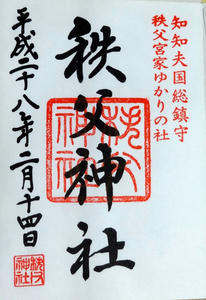 知知夫国総鎮守
秩父宮家ゆかりの社
秩父神社
平成二十八年二月十四日
秩父
神社
秩父
神社